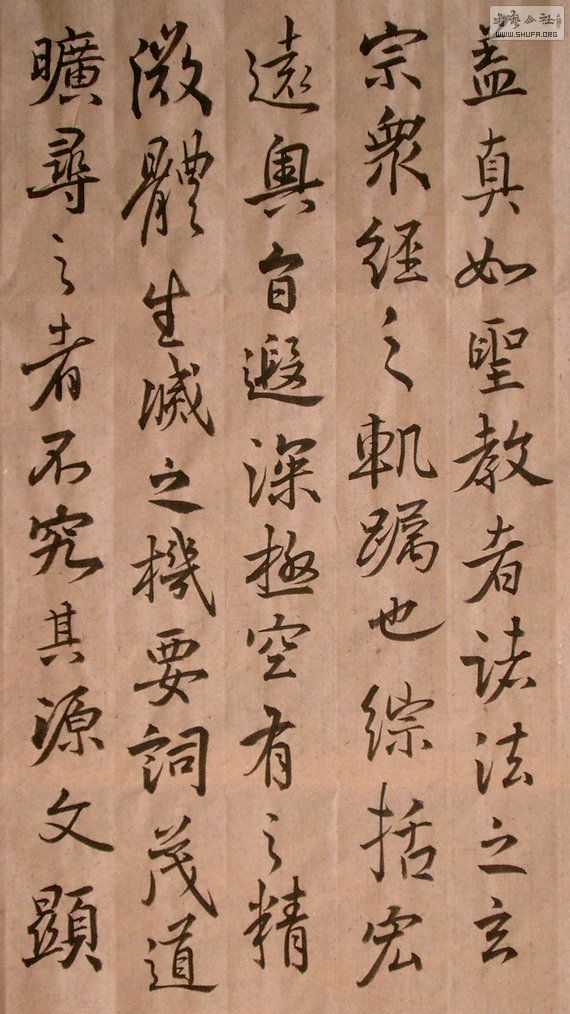 書藝公社
WWW.SHUFA.ORG
盖真如聖教者諸法之玄
宗衆經之軌躅也綜括宏
遠奥旨遐深極空有之精
微體生滅之機要詞茂道
曠尋之者不究其源文顯